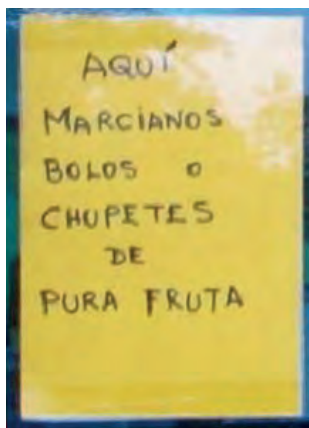 AQUÍ
MARCIANOS
BOLOS O
CHUPETES
DE
PURA FRUTA